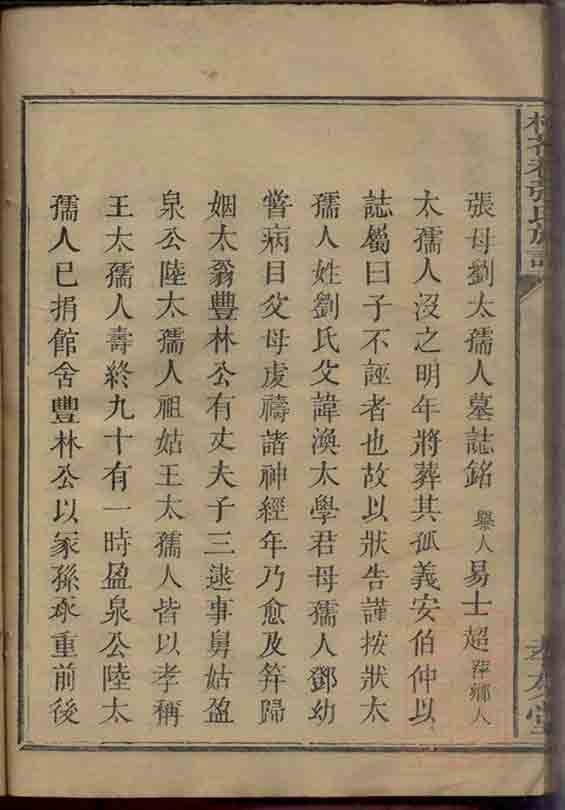 張母劉太孺人墓誌銘 舉人 易士超 萍鄉人
太孺人沒之明年將葬其孤義安伯仲以
誌屬曰子不誣者也故以狀告謹按狀太
孺人姓劉氏父諱渙太學君母孺人鄧幼
嘗病目父母虔禱諸神經年乃愈及笄歸
姻太翁豐林公有丈夫子三逮事舅姑盈
泉公陸太孺人祖姑王太孺人皆以孝稱
王太孺人壽終九十有一時盈泉公陸太
孺人已捐館舍豐林公以冢孫承重前後
張氏族譜
堂